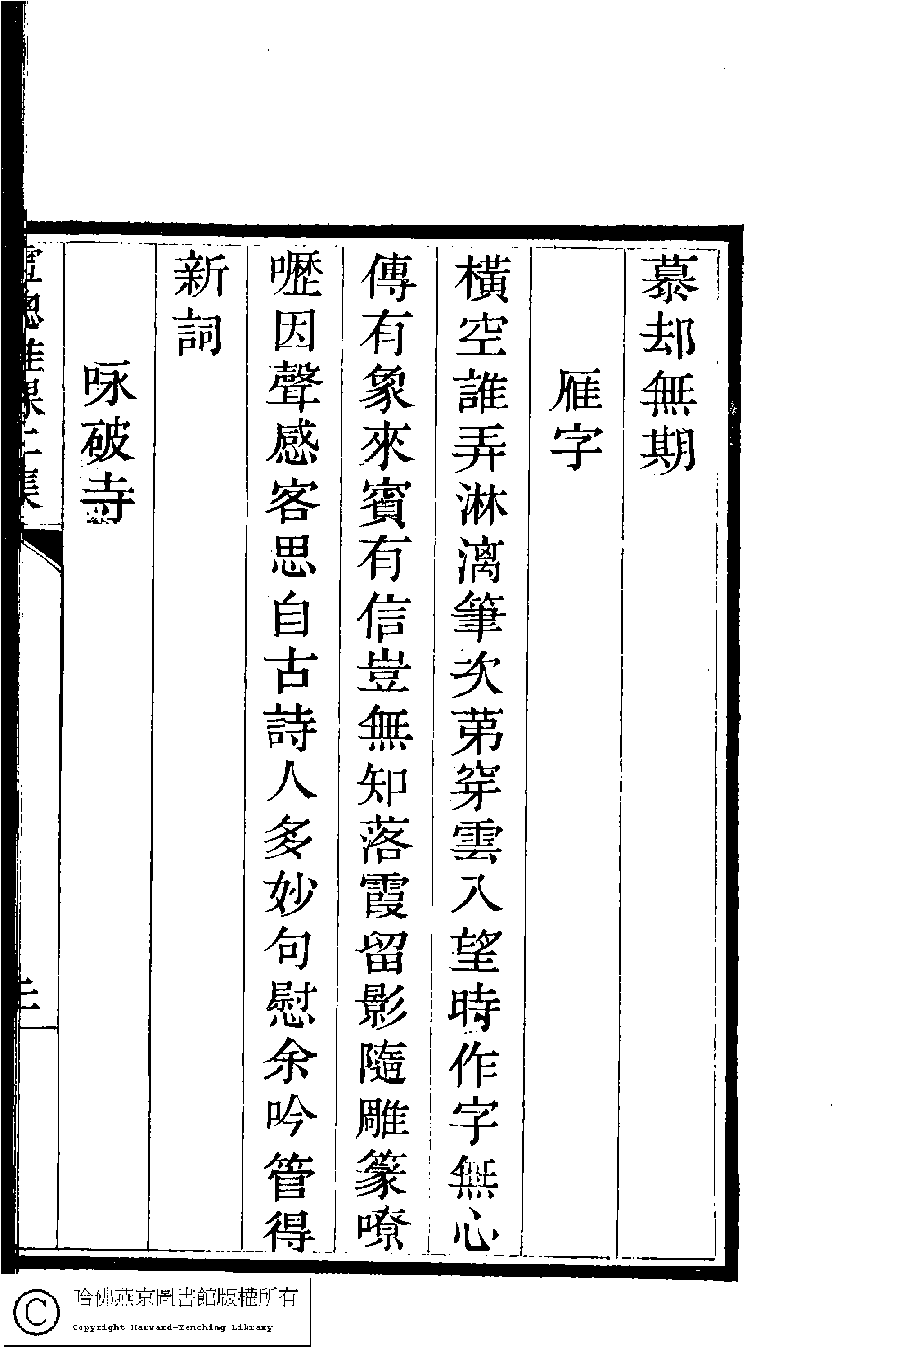 慕却無期
雁字
橫空誰弄淋漓筆次苐穿雲入望時作字無心
傳有象來賓有信豈無知落霞留影隨雕篆嘹
嚦因聲感客思自古詩人多妙句慰余吟管得
新詞
咏破寺
哈佛燕京圖書館版權所有
Copyright Harvard-Yenching Library